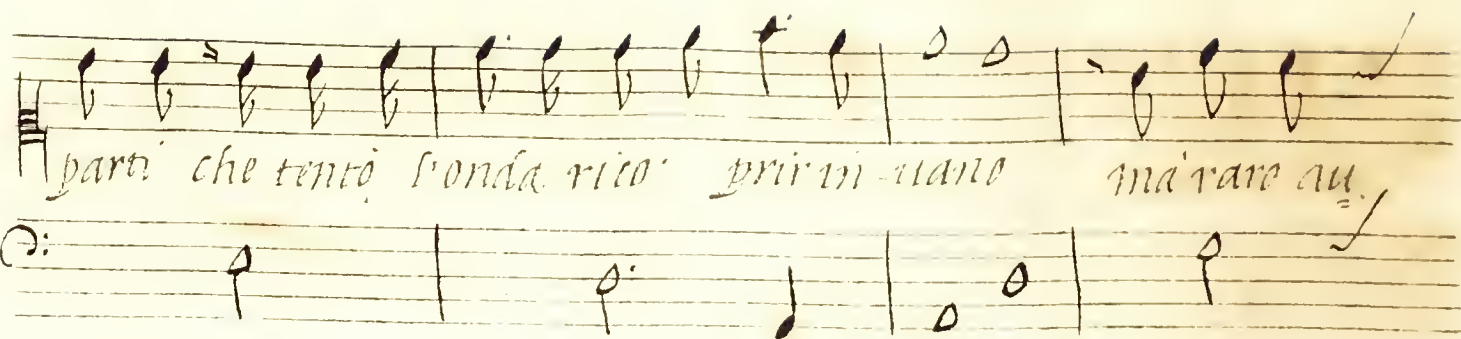 parti che tentò l'onda rico prir in uano mà raro au